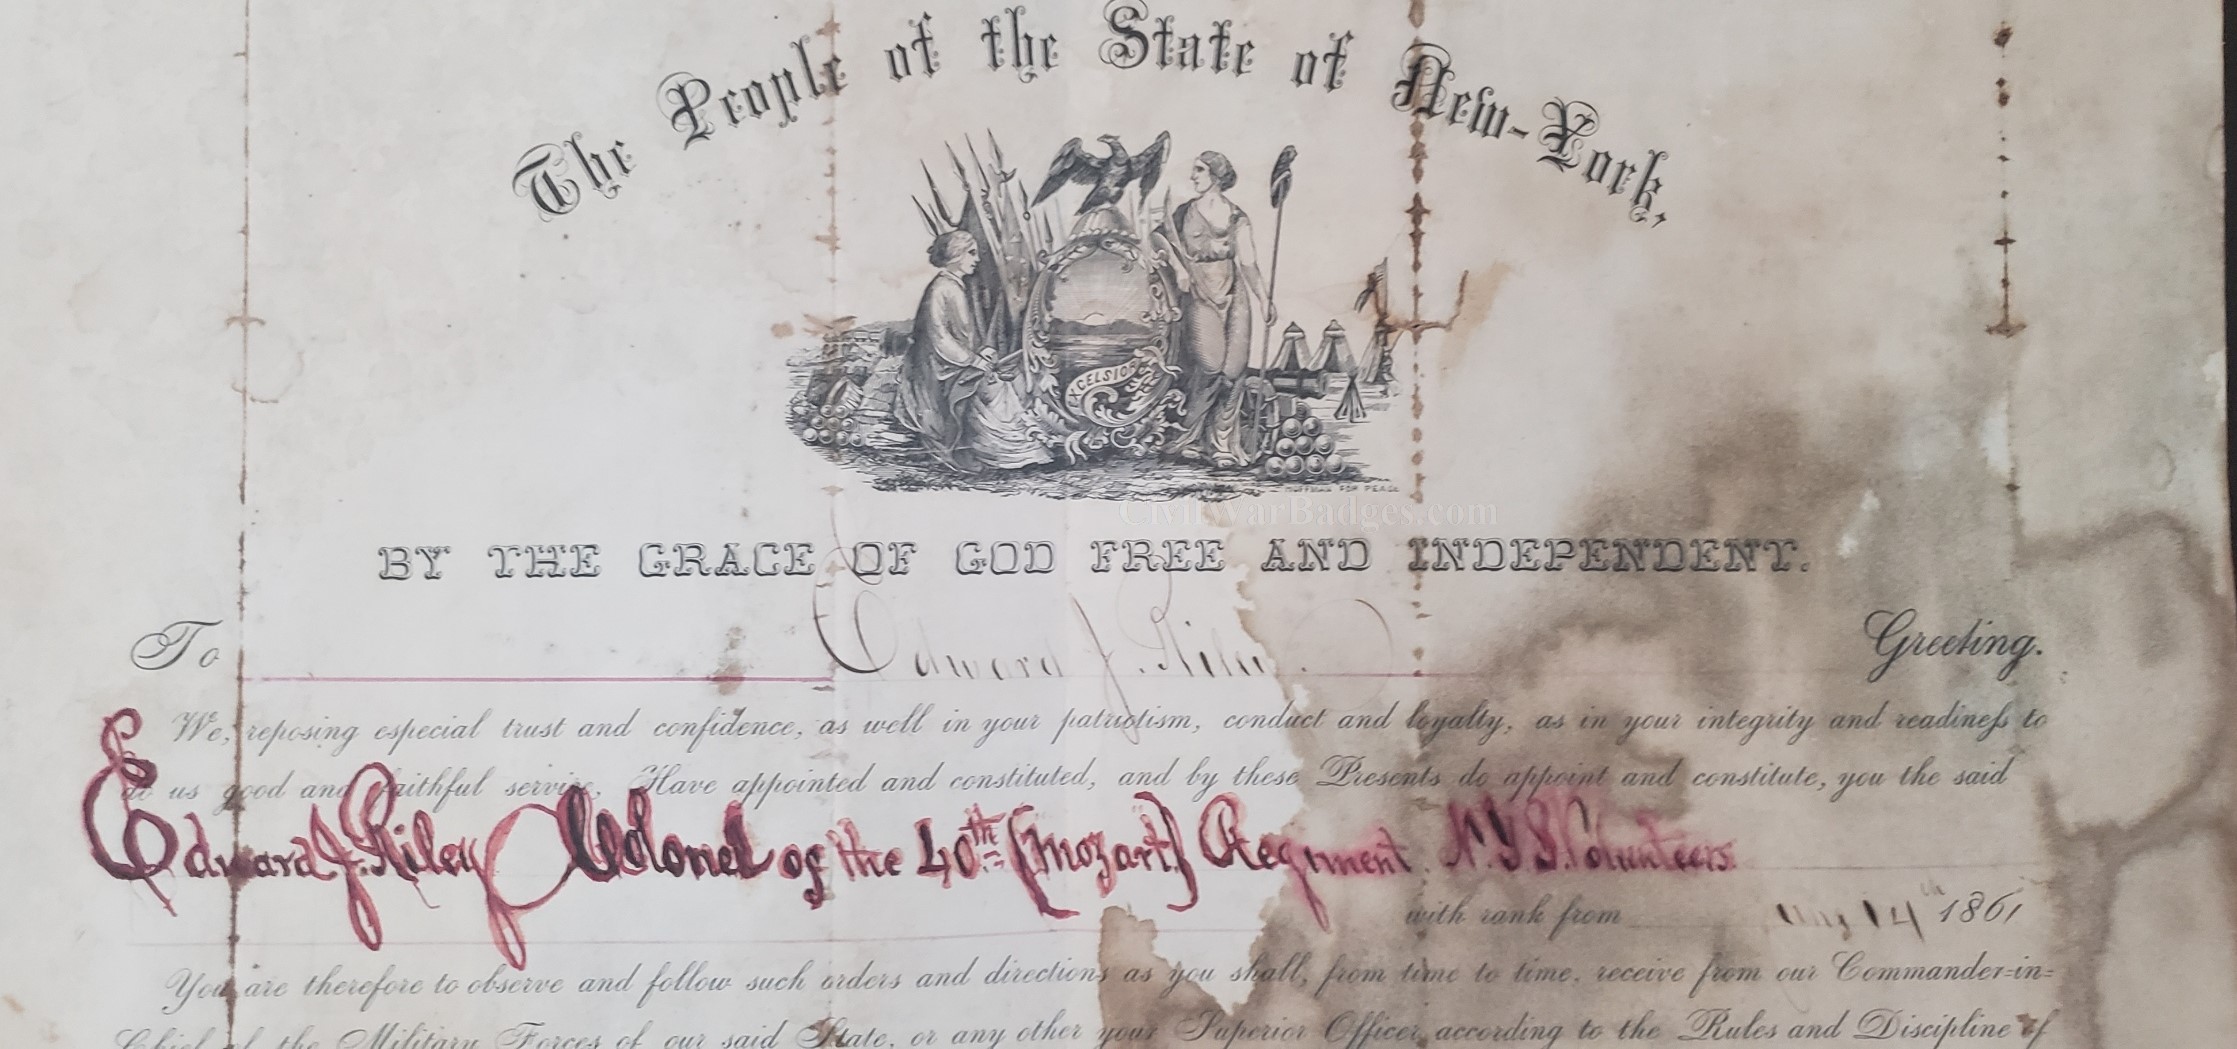 The People of the State of New-York,
EXCELSIOR
CivilWarBadges.com
BY THE GRACE OF GOD FREE AND INDEPENDENT.
To Edward J. Riley. Greeting.
We, reposing especial trust and confidence, as well in your patriotism, conduct and loyalty, as in your integrity and readiness to
do us good and faithful service, Have appointed and constituted, and by these Presents do appoint and constitute, you the said
Edward J. Riley Colonel of the 40th (Mozart) Regiment N.Y.S. Volunteers.
with rank from 14th 1861
You are therefore to observe and follow such orders and directions as you shall, from time to time, receive from our Commander-in-
Chief of the Military Forces of our said State, or any other your Superior Officer, according to the Rules and Discipline of